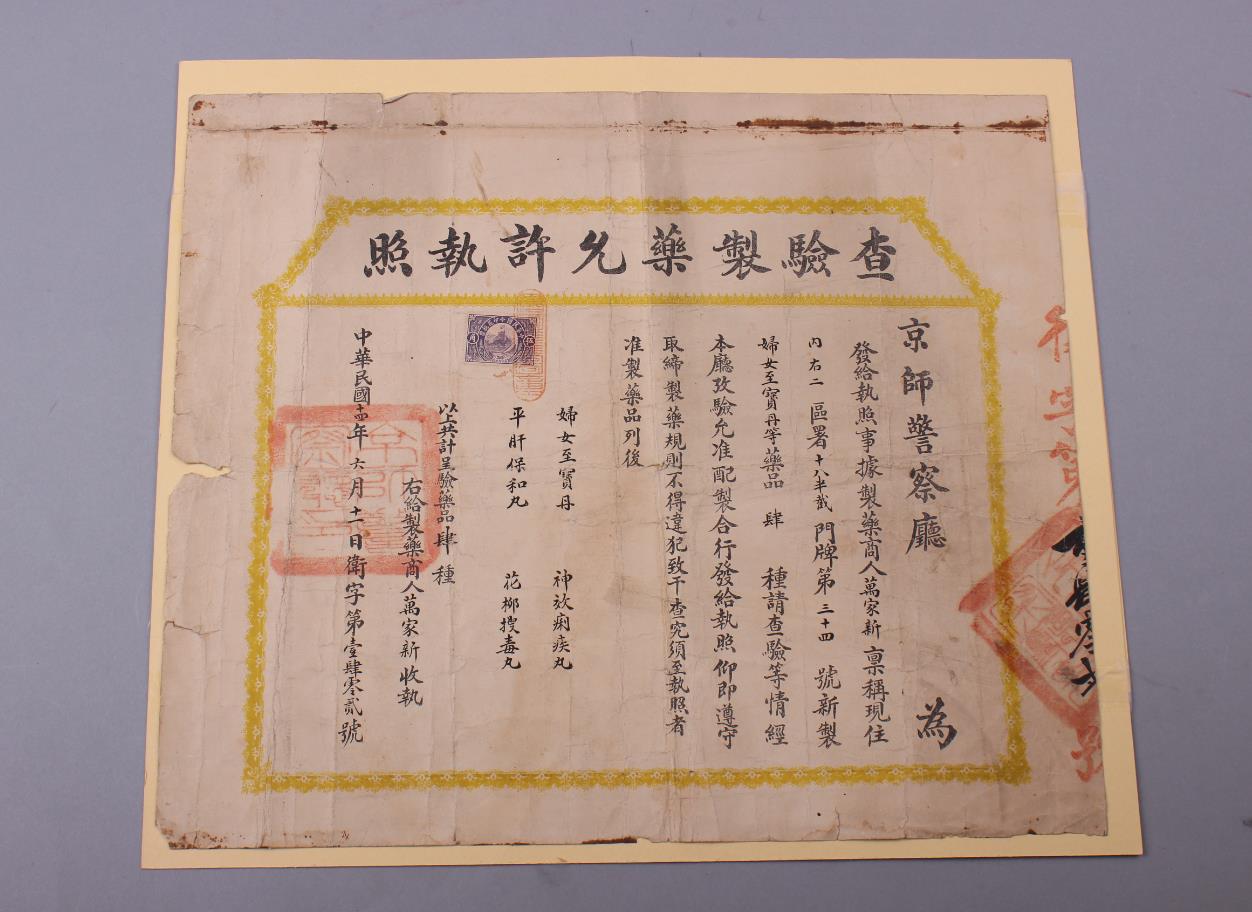 查驗製藥允許執照
京師警察廳 為
發給執照事據製藥商人萬家新稟稱現住
内右二區署十八半截門牌第三十四號新製
婦女至寶丹等藥品肆種請查驗等情經
本廳攷驗允准配製合行發給執照仰即遵守
取締製藥規則不得違犯致干查究須至執照者
准製藥品列後
婦女至寶丹 神效痢疾丸
平肝保和丸 花柳搜毒丸
以上共計呈驗藥品肆種
右給製藥商人萬家新收執
中華民國十四年六月十一日衛字第壹肆零貳號